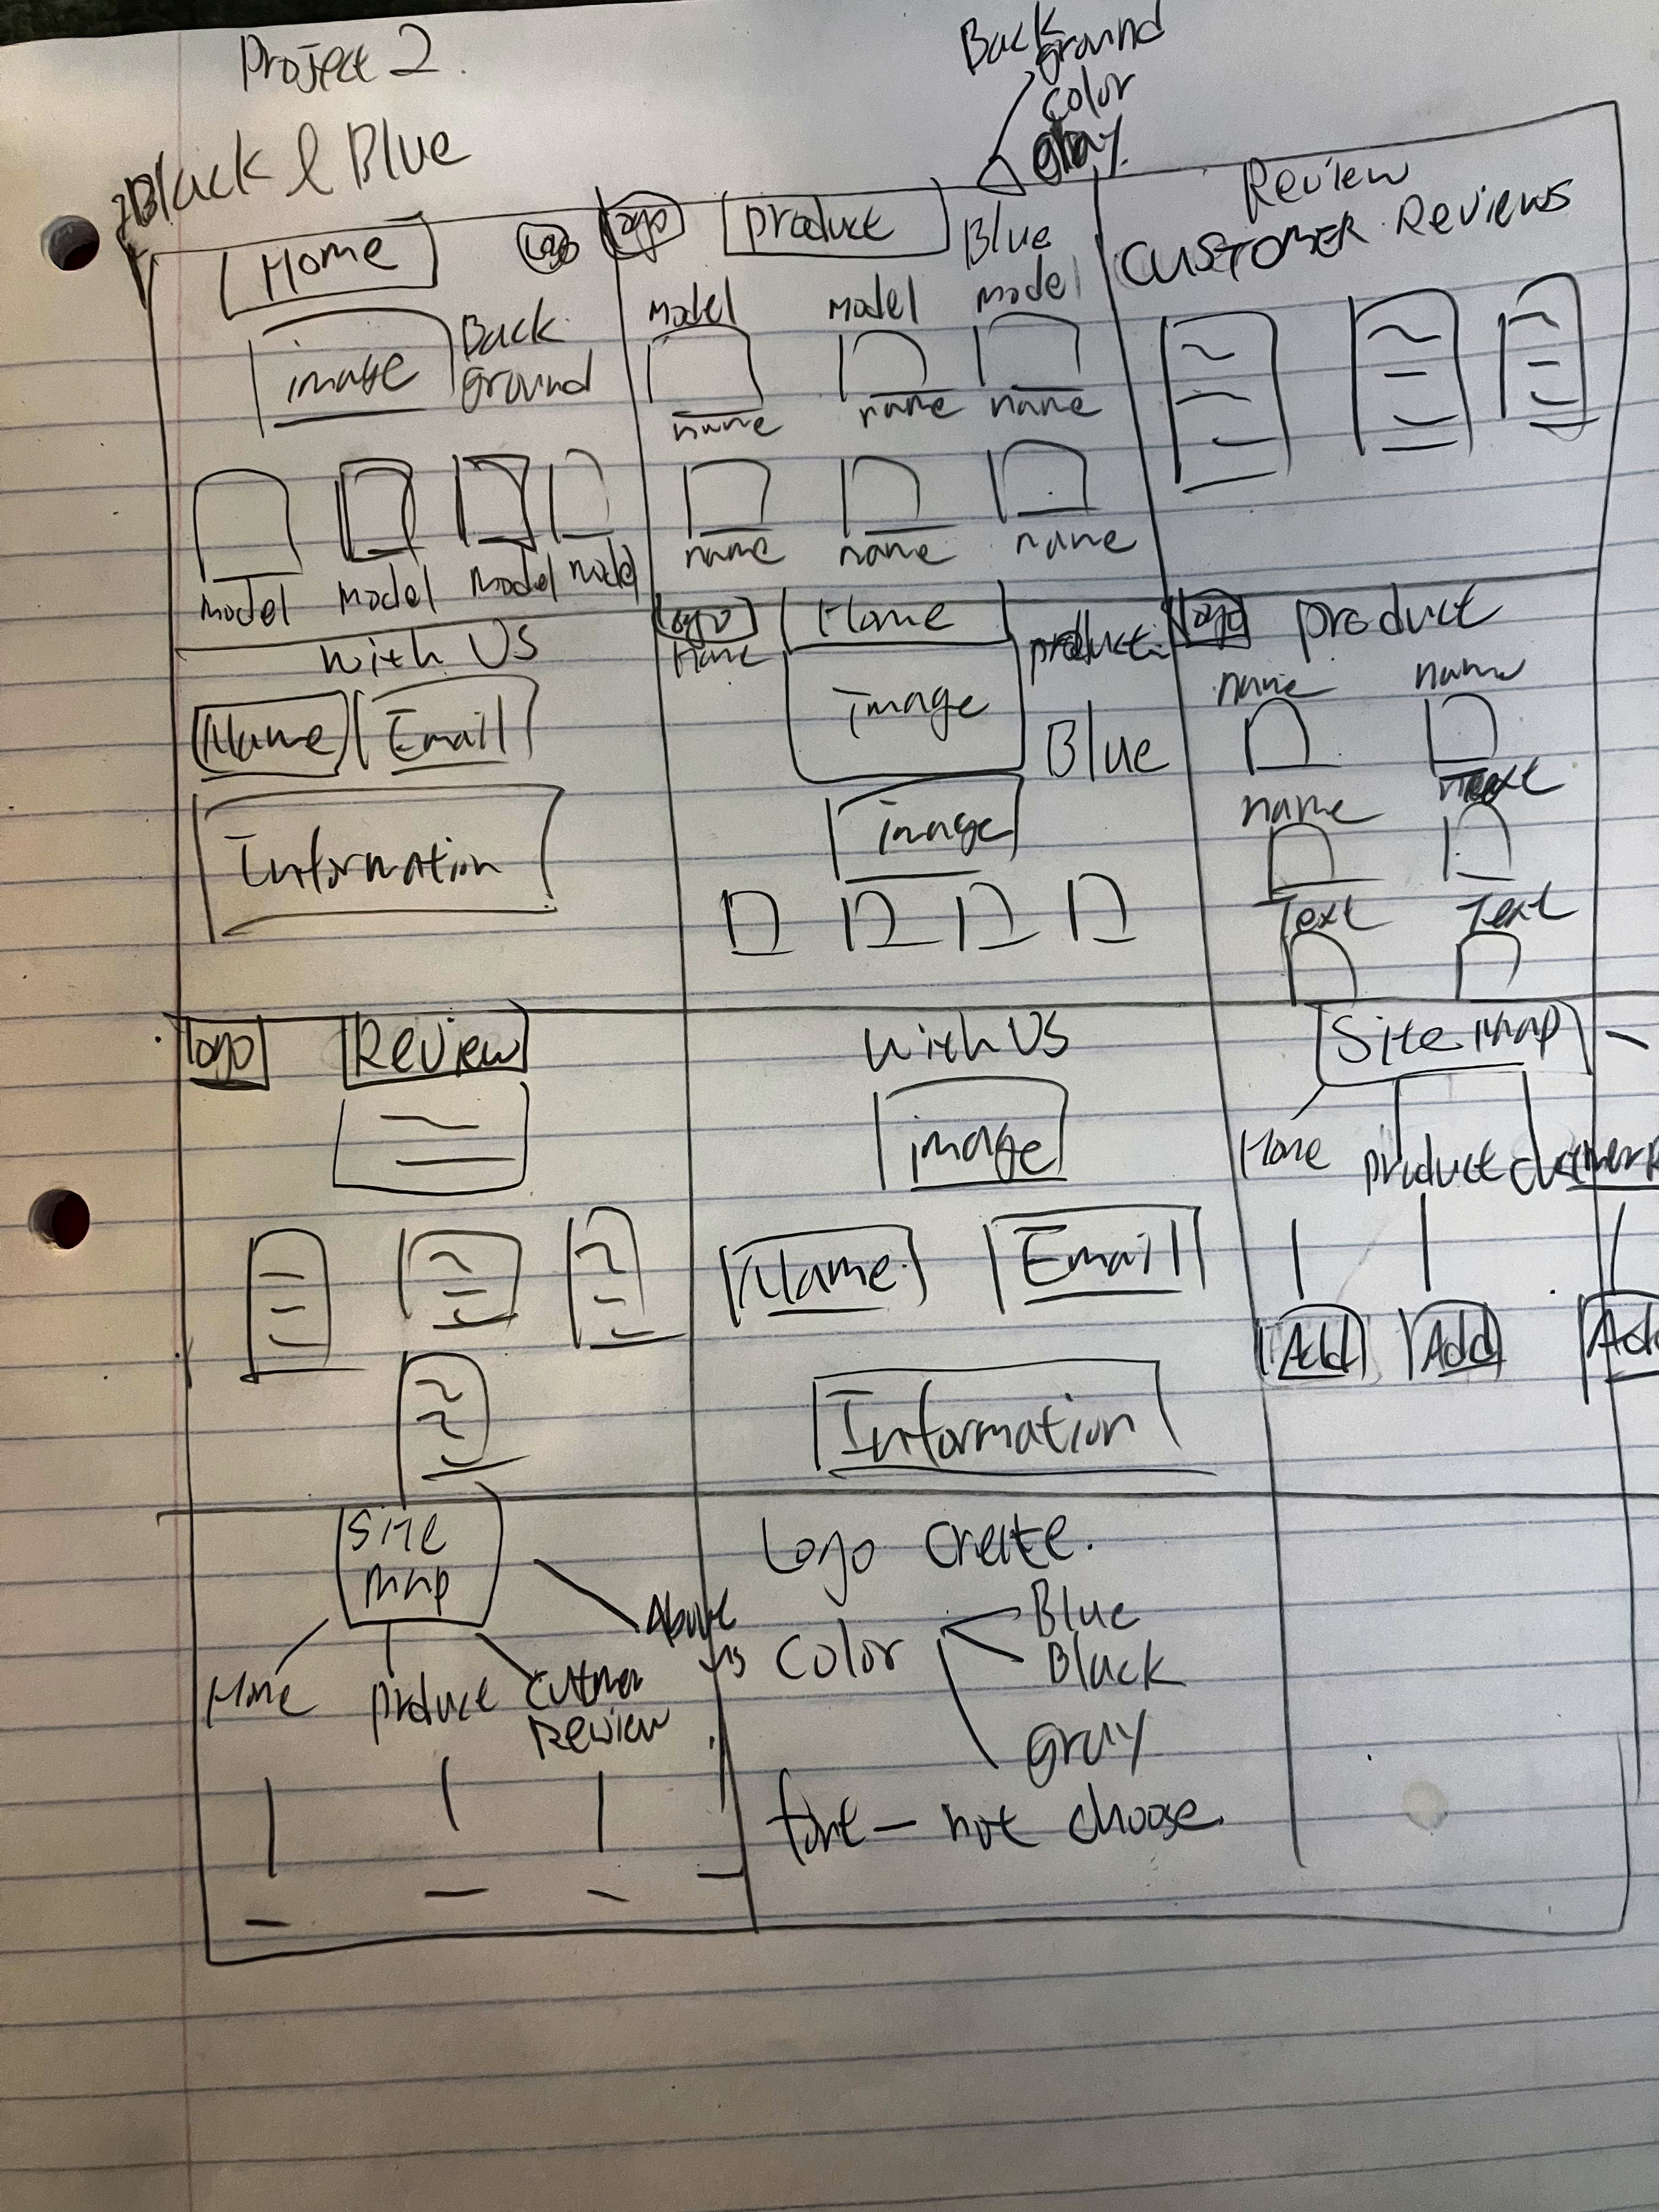 Project 2.
Back
ground
color
gray.
Black & Blue
Home
Logo
image
Back
ground
model
model
model
model
logo
product
Blue
model
model
model
name
name
name
name
name
name
Review
CUSTOMER Reviews
with US
Name
Email
Information
logo
Home
Home
product
image
Blue
image
logo
product
name
name
name
Text
Text
logo
Review
with US
image
Name
Email
Information
Site Map
Home
product
Add
Add
Add
Site
map
Home
product
Review
About
us
Logo create.
Color
Blue
Black
Gray
font - not choose.